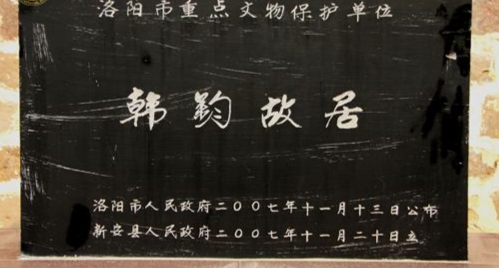 洛阳市重点文物保护单位
韩钧故居
洛阳市人民政府二〇〇七年十一月十三日公布
新安县人民政府二〇〇七年十一月二十日立